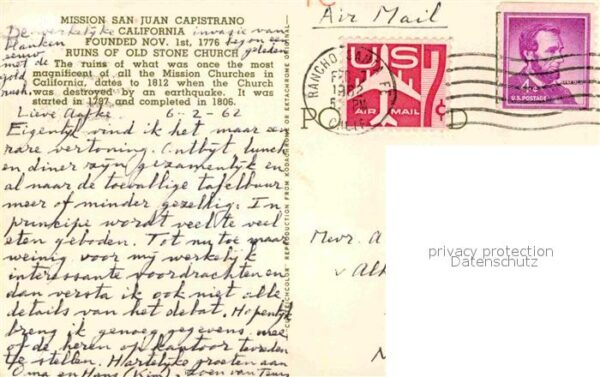 MISSION SAN JUAN CAPISTRANO
CALIFORNIA
FOUNDED NOV. 1st, 1776
RUINS OF OLD STONE CHURCH
The ruins of what was once the most
magnificent of all the Mission Churches in
California, dates to 1812 when the Church
was destroyed by an earthquake. It was
started in 1797 and completed in 1806.
De werkelijke invasie van
blanken begon een
eeuw geleden
met de
gold
rush.
Lieve Aafke. 6-2-62
Eigenlijk vind ik het maar een
rare vertoning. Ontbijt, lunch
en diner zijn gezamenlijk en
al naar de toevallige tafelbuur
meer of minder gezellig. In
principe wordt veel te veel
eten geboden. Tot nu toe maar
weinig voor my werkelijk
interessante voordrachten en
dan versta ik ook niet alle
details van het debat. Hopenlijk
breng ik genoeg gegevens mee
om de heren op kantoor tevreden
te stellen. Hartelijke groeten aan
Oma en Hans (Kim). Zoen van
Air Mail
RANCHO
CALIF
1962
PM
US
AIR MAIL
7¢
4¢
U.S. POSTAGE
PO
D
Mevr. A
v Al
privacy protection
Datenschutz
REPRODUCTION FROM KODACHROME OR EKTACHROME ORIGINAL